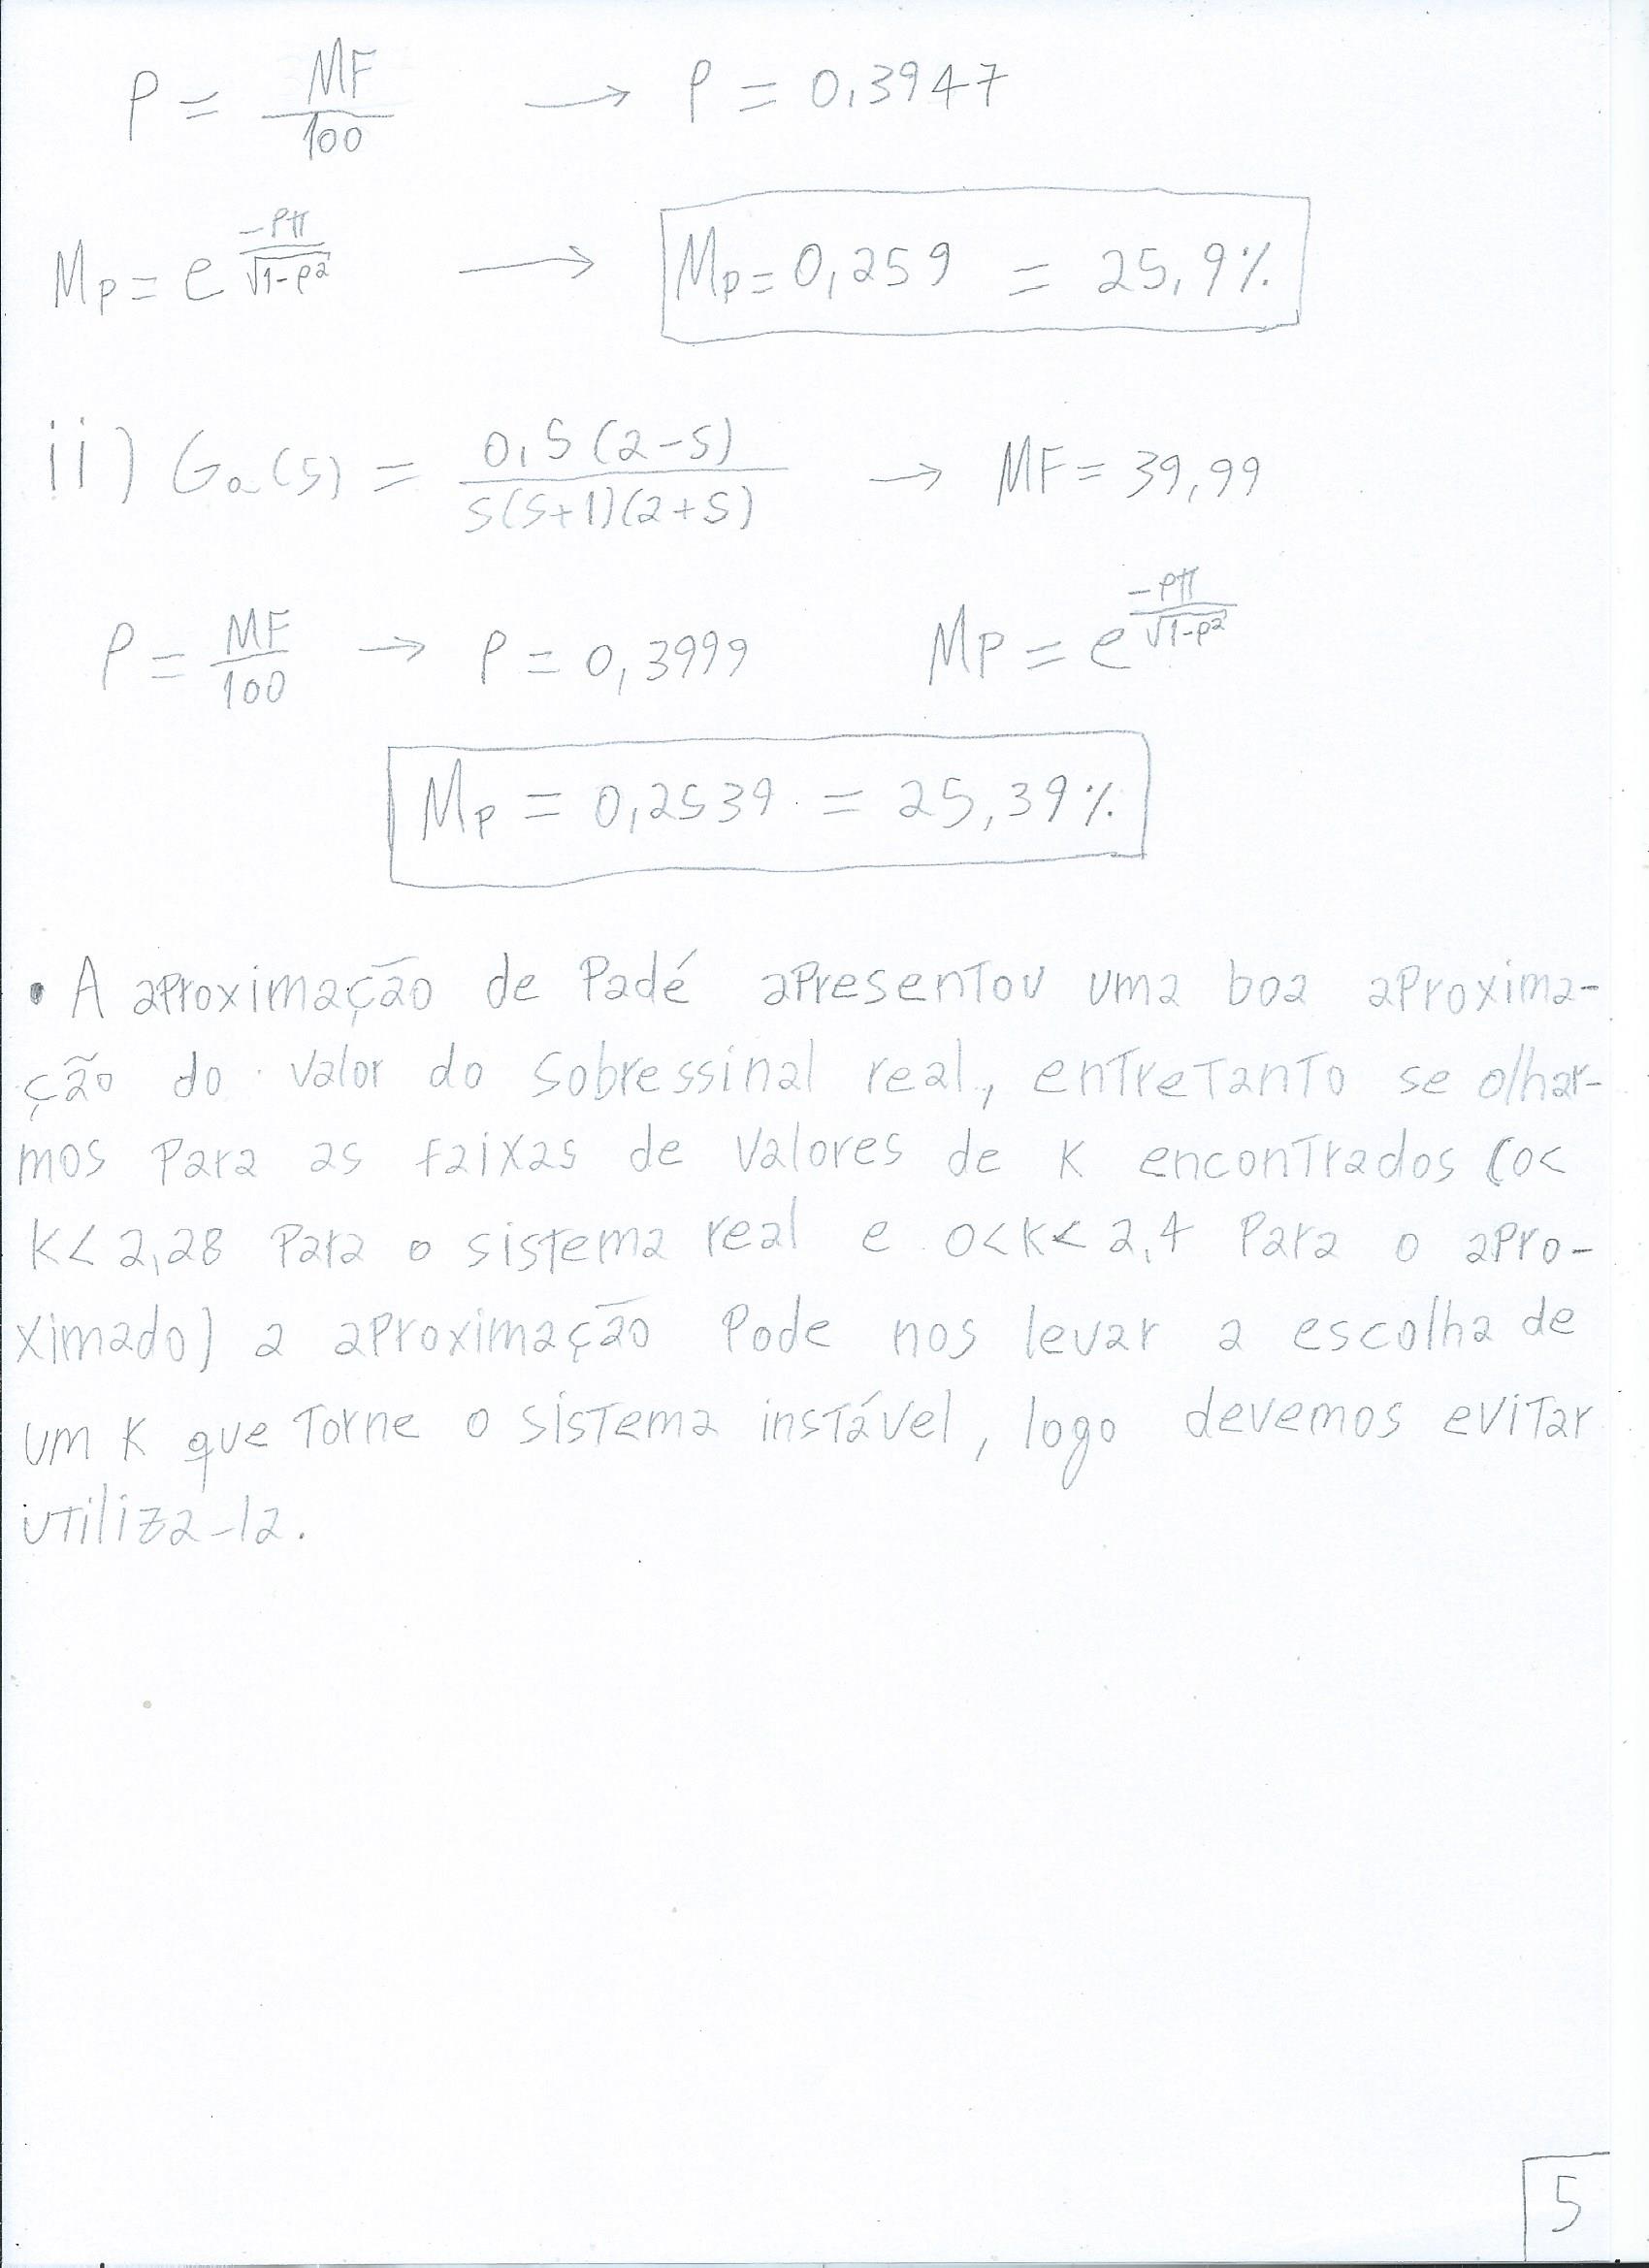 ρ = MF/100 → ρ = 0,3947
Mp = e^(-ρπ/√1-ρ²) → Mp = 0,259 = 25,9%
ii) Ga(s) = 0,5(2-s)/s(s+1)(2+s) → MF = 39,99
ρ = MF/100 → ρ = 0,3999 Mp = e^(-ρπ/√1-ρ²)
Mp = 0,2539 = 25,39%
• A aproximação de Padé apresentou uma boa aproxima-
ção do valor do sobressinal real, entretanto se olhar-
mos para as faixas de valores de K encontrados (0<
K< 2,28 para o sistema real e 0<K< 2,4 para o apro-
ximado) a aproximação pode nos levar a escolha de
um K que torne o sistema instável, logo devemos evitar
utiliza-la.
5